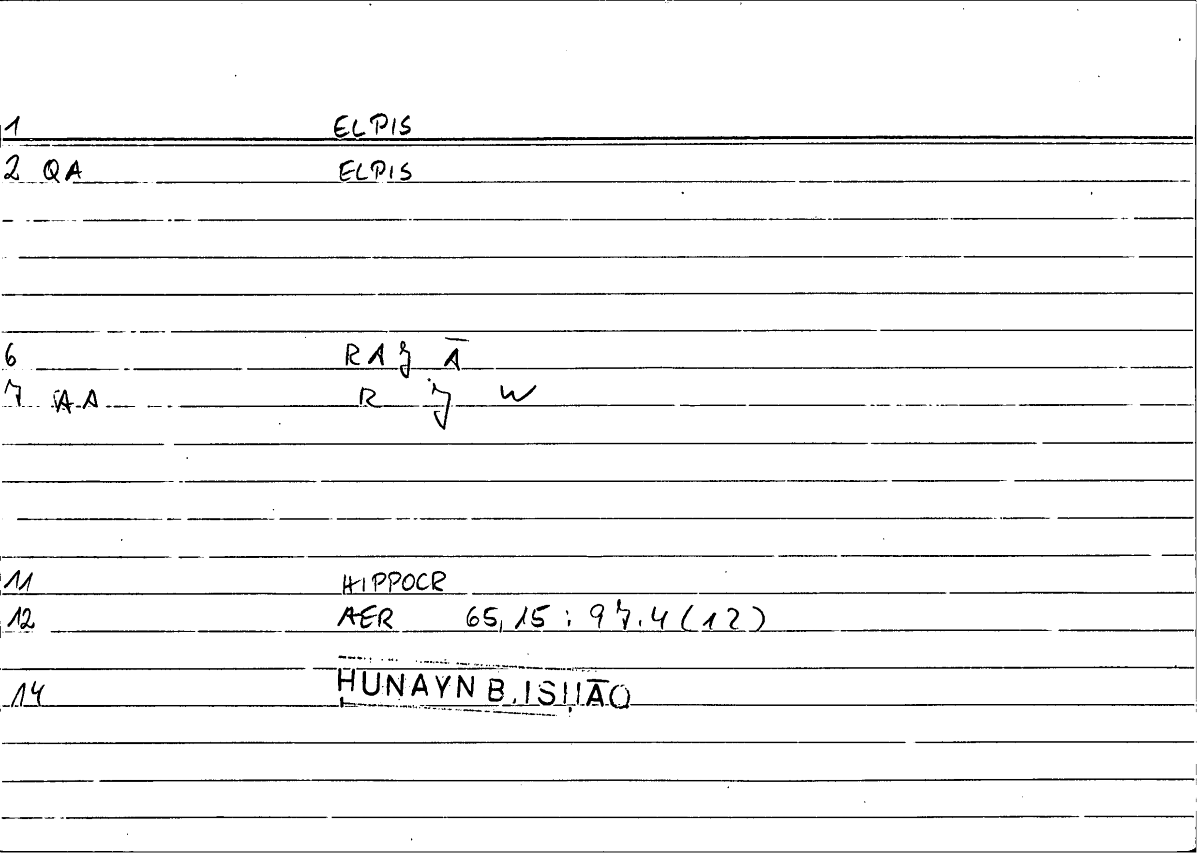 1 ELPIS
2 QA ELPIS
6 RAǧ Ā
7 AA R ǧ W
11 HIPPOCR
12 AER 65,15 : 97.4 (12)
14 ḤUNAYN B. ISḤĀQ